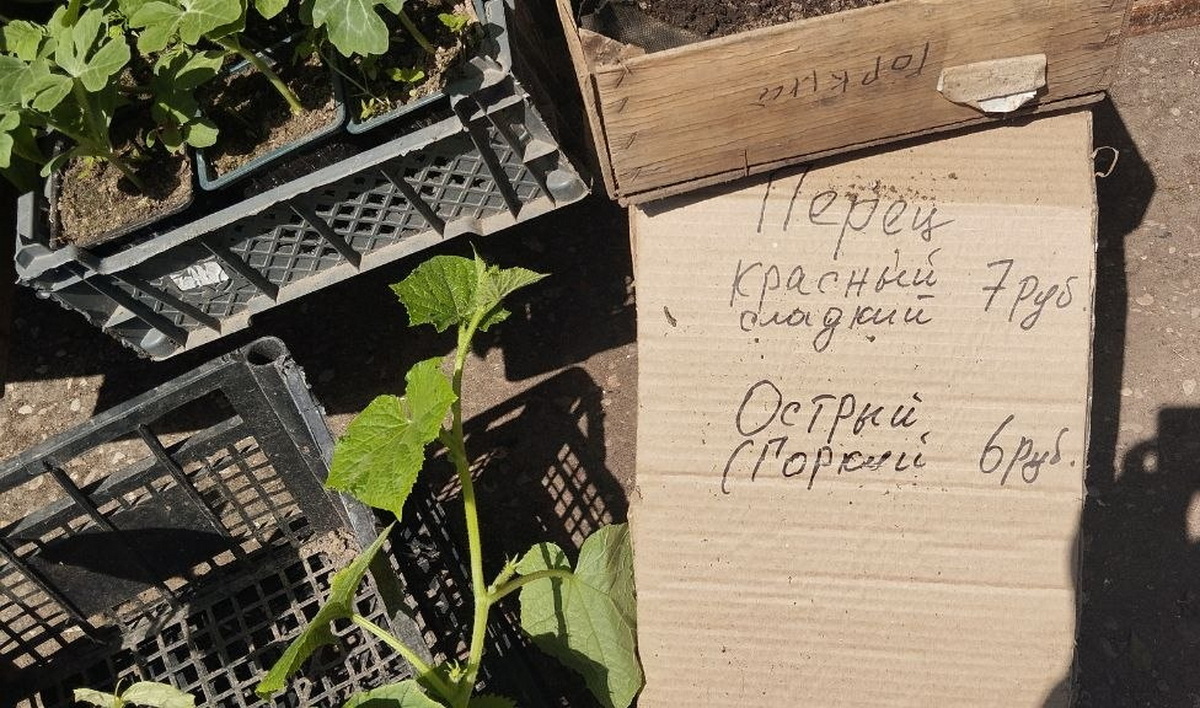 Горкий
Перец
красный
сладкий 7 руб.
Острый
(Горкий 6 руб.